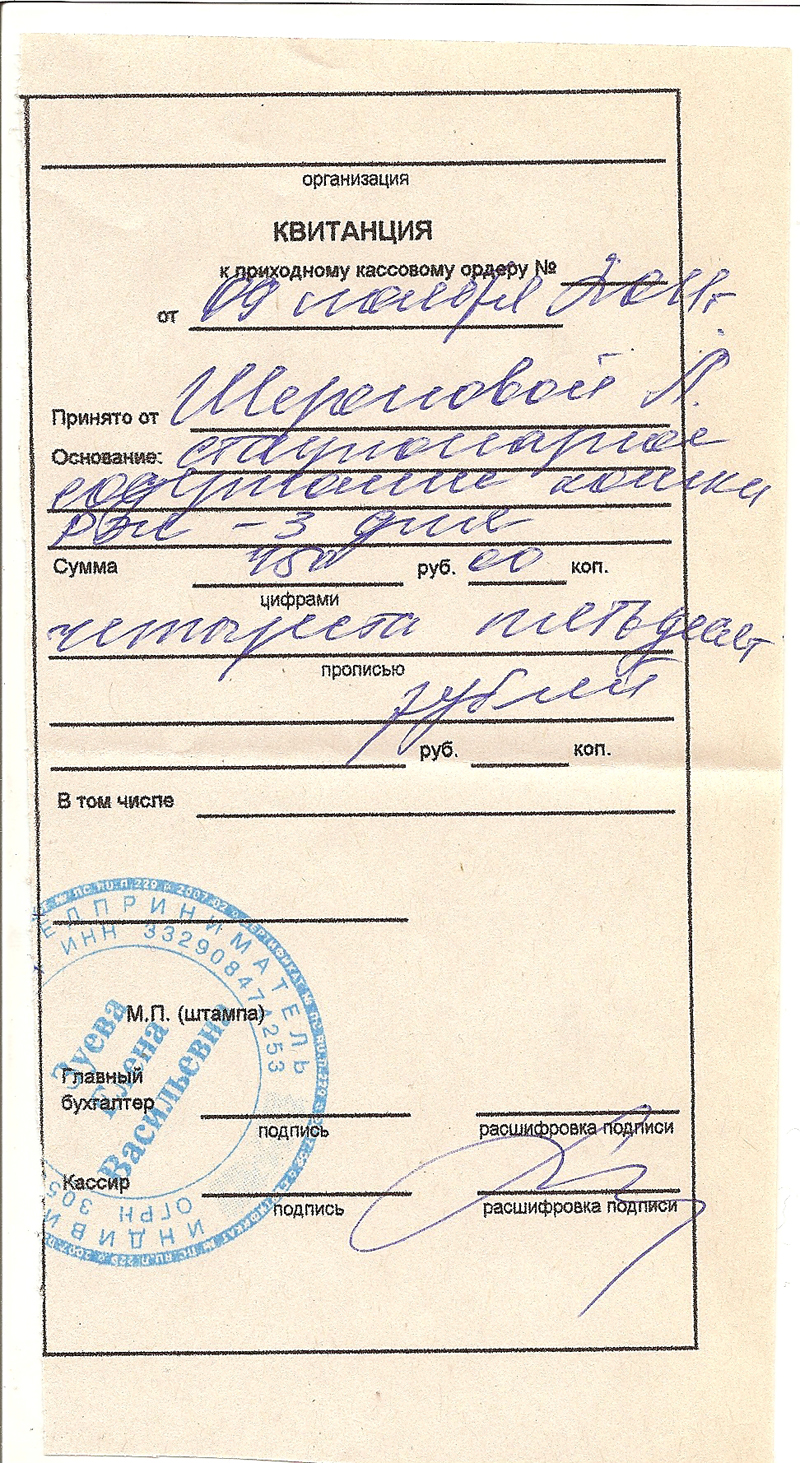 организация
КВИТАНЦИЯ
к приходному кассовому ордеру №
от 09 ноября 2011г.
Принято от Шероновой Л.
Основание: стационарное
содержание кошки
Рэи - 3 дня
Сумма 450 руб. 00 коп.
цифрами
четыреста пятьдесят
прописью
рублей
руб. коп.
В том числе
ИНДИВИ
ЕДПРИНИМАТЕЛЬ
ИНН 332908474253
ОГРН 305
Зуева
Елена
Васильевна
М.П. (штампа)
Главный
бухгалтер
подпись расшифровка подписи
Кассир
подпись расшифровка подписи